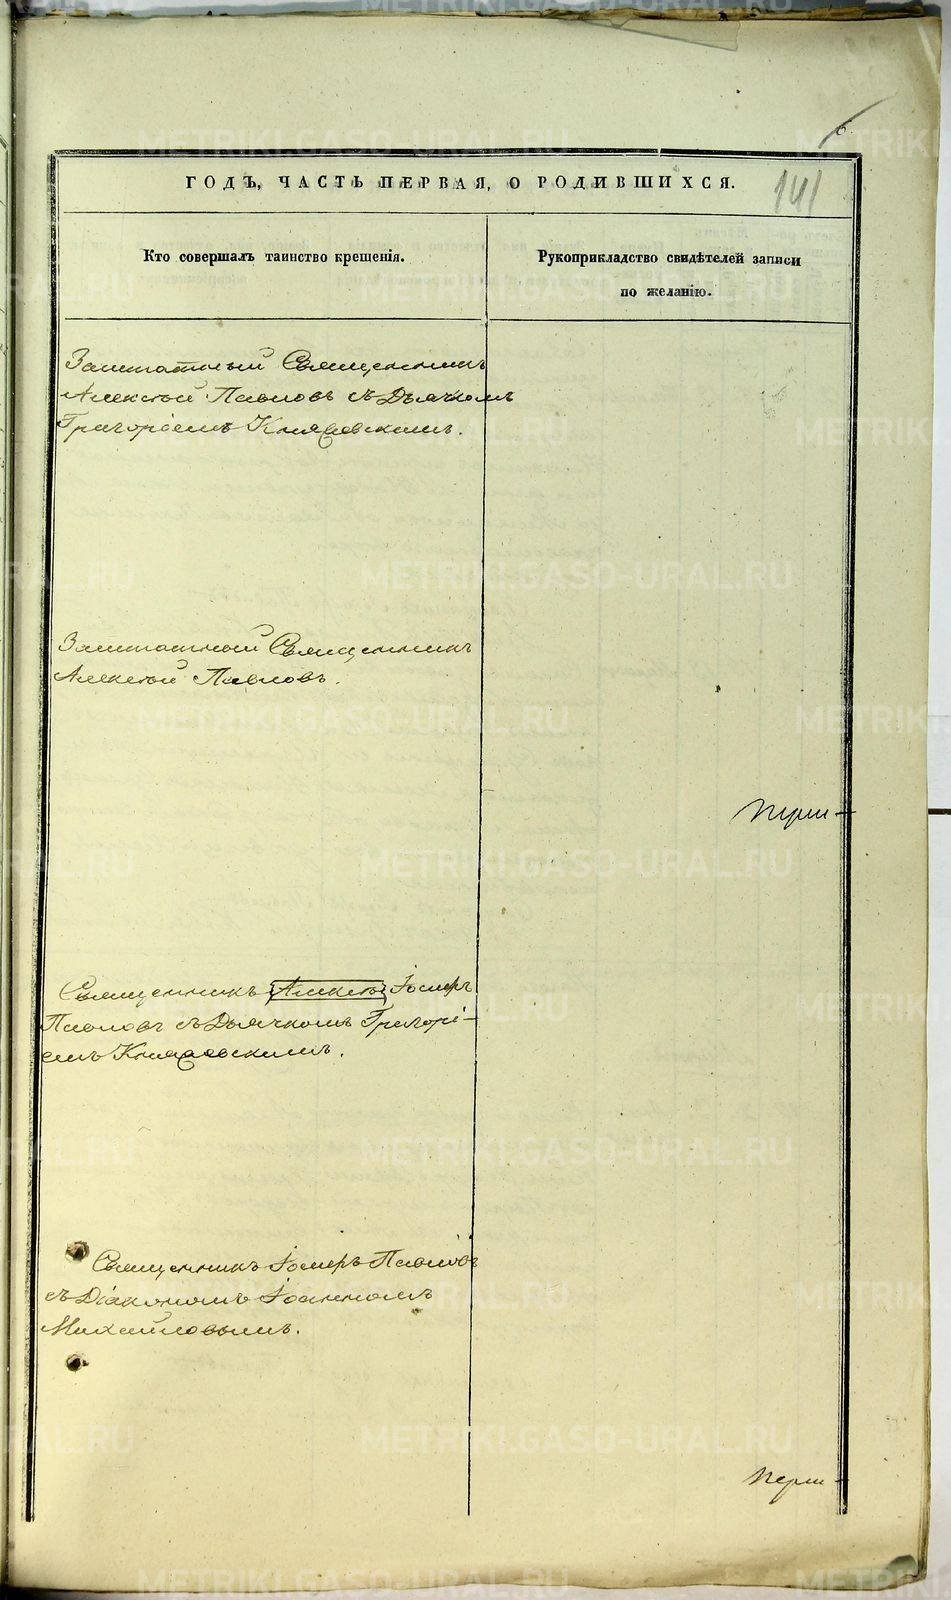 6
ГОДЪ, ЧАСТЬ ПЕРВАЯ, О РОДИВШИХСЯ.
141
Кто совершалъ таинство крещенія.
Рукоприкладство свидѣтелей записи
по желанію.
Заштатный Священникъ
Алексѣй Павловъ съ Дьячкомъ
Григоріемъ Князевскимъ.
Заштатный Священникъ
Алексѣй Павловъ.
Священникъ Алексѣй Іосифъ
Павловъ съ Дьячкомъ Григорі-
емъ Князевскимъ.
Священникъ Іосифъ Павловъ
съ Діакономъ Іоанномъ
Михайловымъ.
METRIKI.GASO-URAL.RU